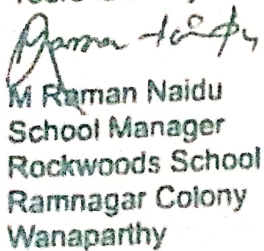 M Raman Naidu
School Manager
Rockwoods School
Ramnagar Colony
Wanaparthy